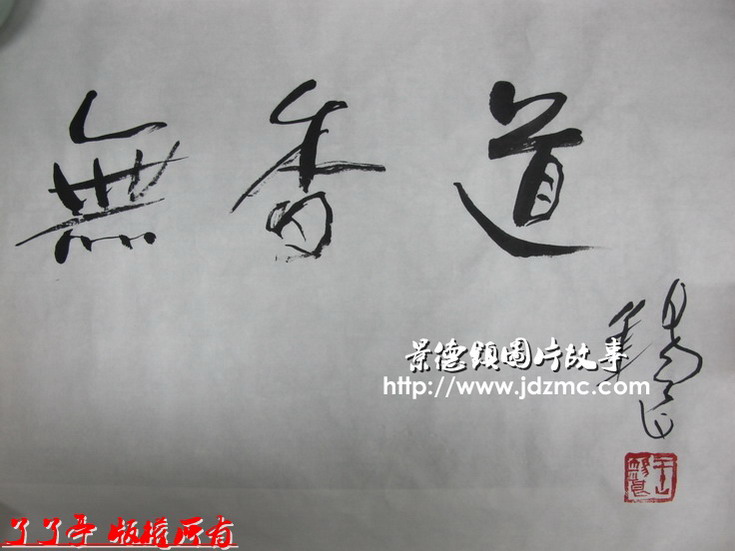 無香道
景德鎮圖片故事
http://www.jdzmc.com
了了亭 版權所有